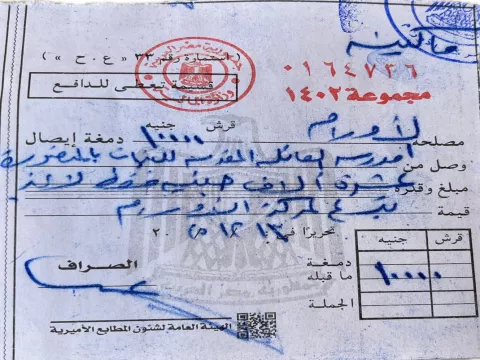 مالية
استمارة رقم ٣٣ « ع . ح »
٠١٦٤٧٢٦
قسيمة تعطى للدافع
مجموعة ١٤٠٢
قرش جنيه
مصلحة الأورام
١٠٠٠٠ دمغة إيصال
وصل من مدرسة العائلة المقدسة للبنات بالمنصورة
مبلغ وقدره عشرة آلاف جنيه فقط لا غير
قيمة تبرع لمركز الأورام
تحريرا في ١٣ / ١٢ / ٢٠٢٥
قرش جنيه
الصراف
دمغة
ما قبله ١٠٠٠٠
الجملة
الهيئة العامة لشئون المطابع الأميرية